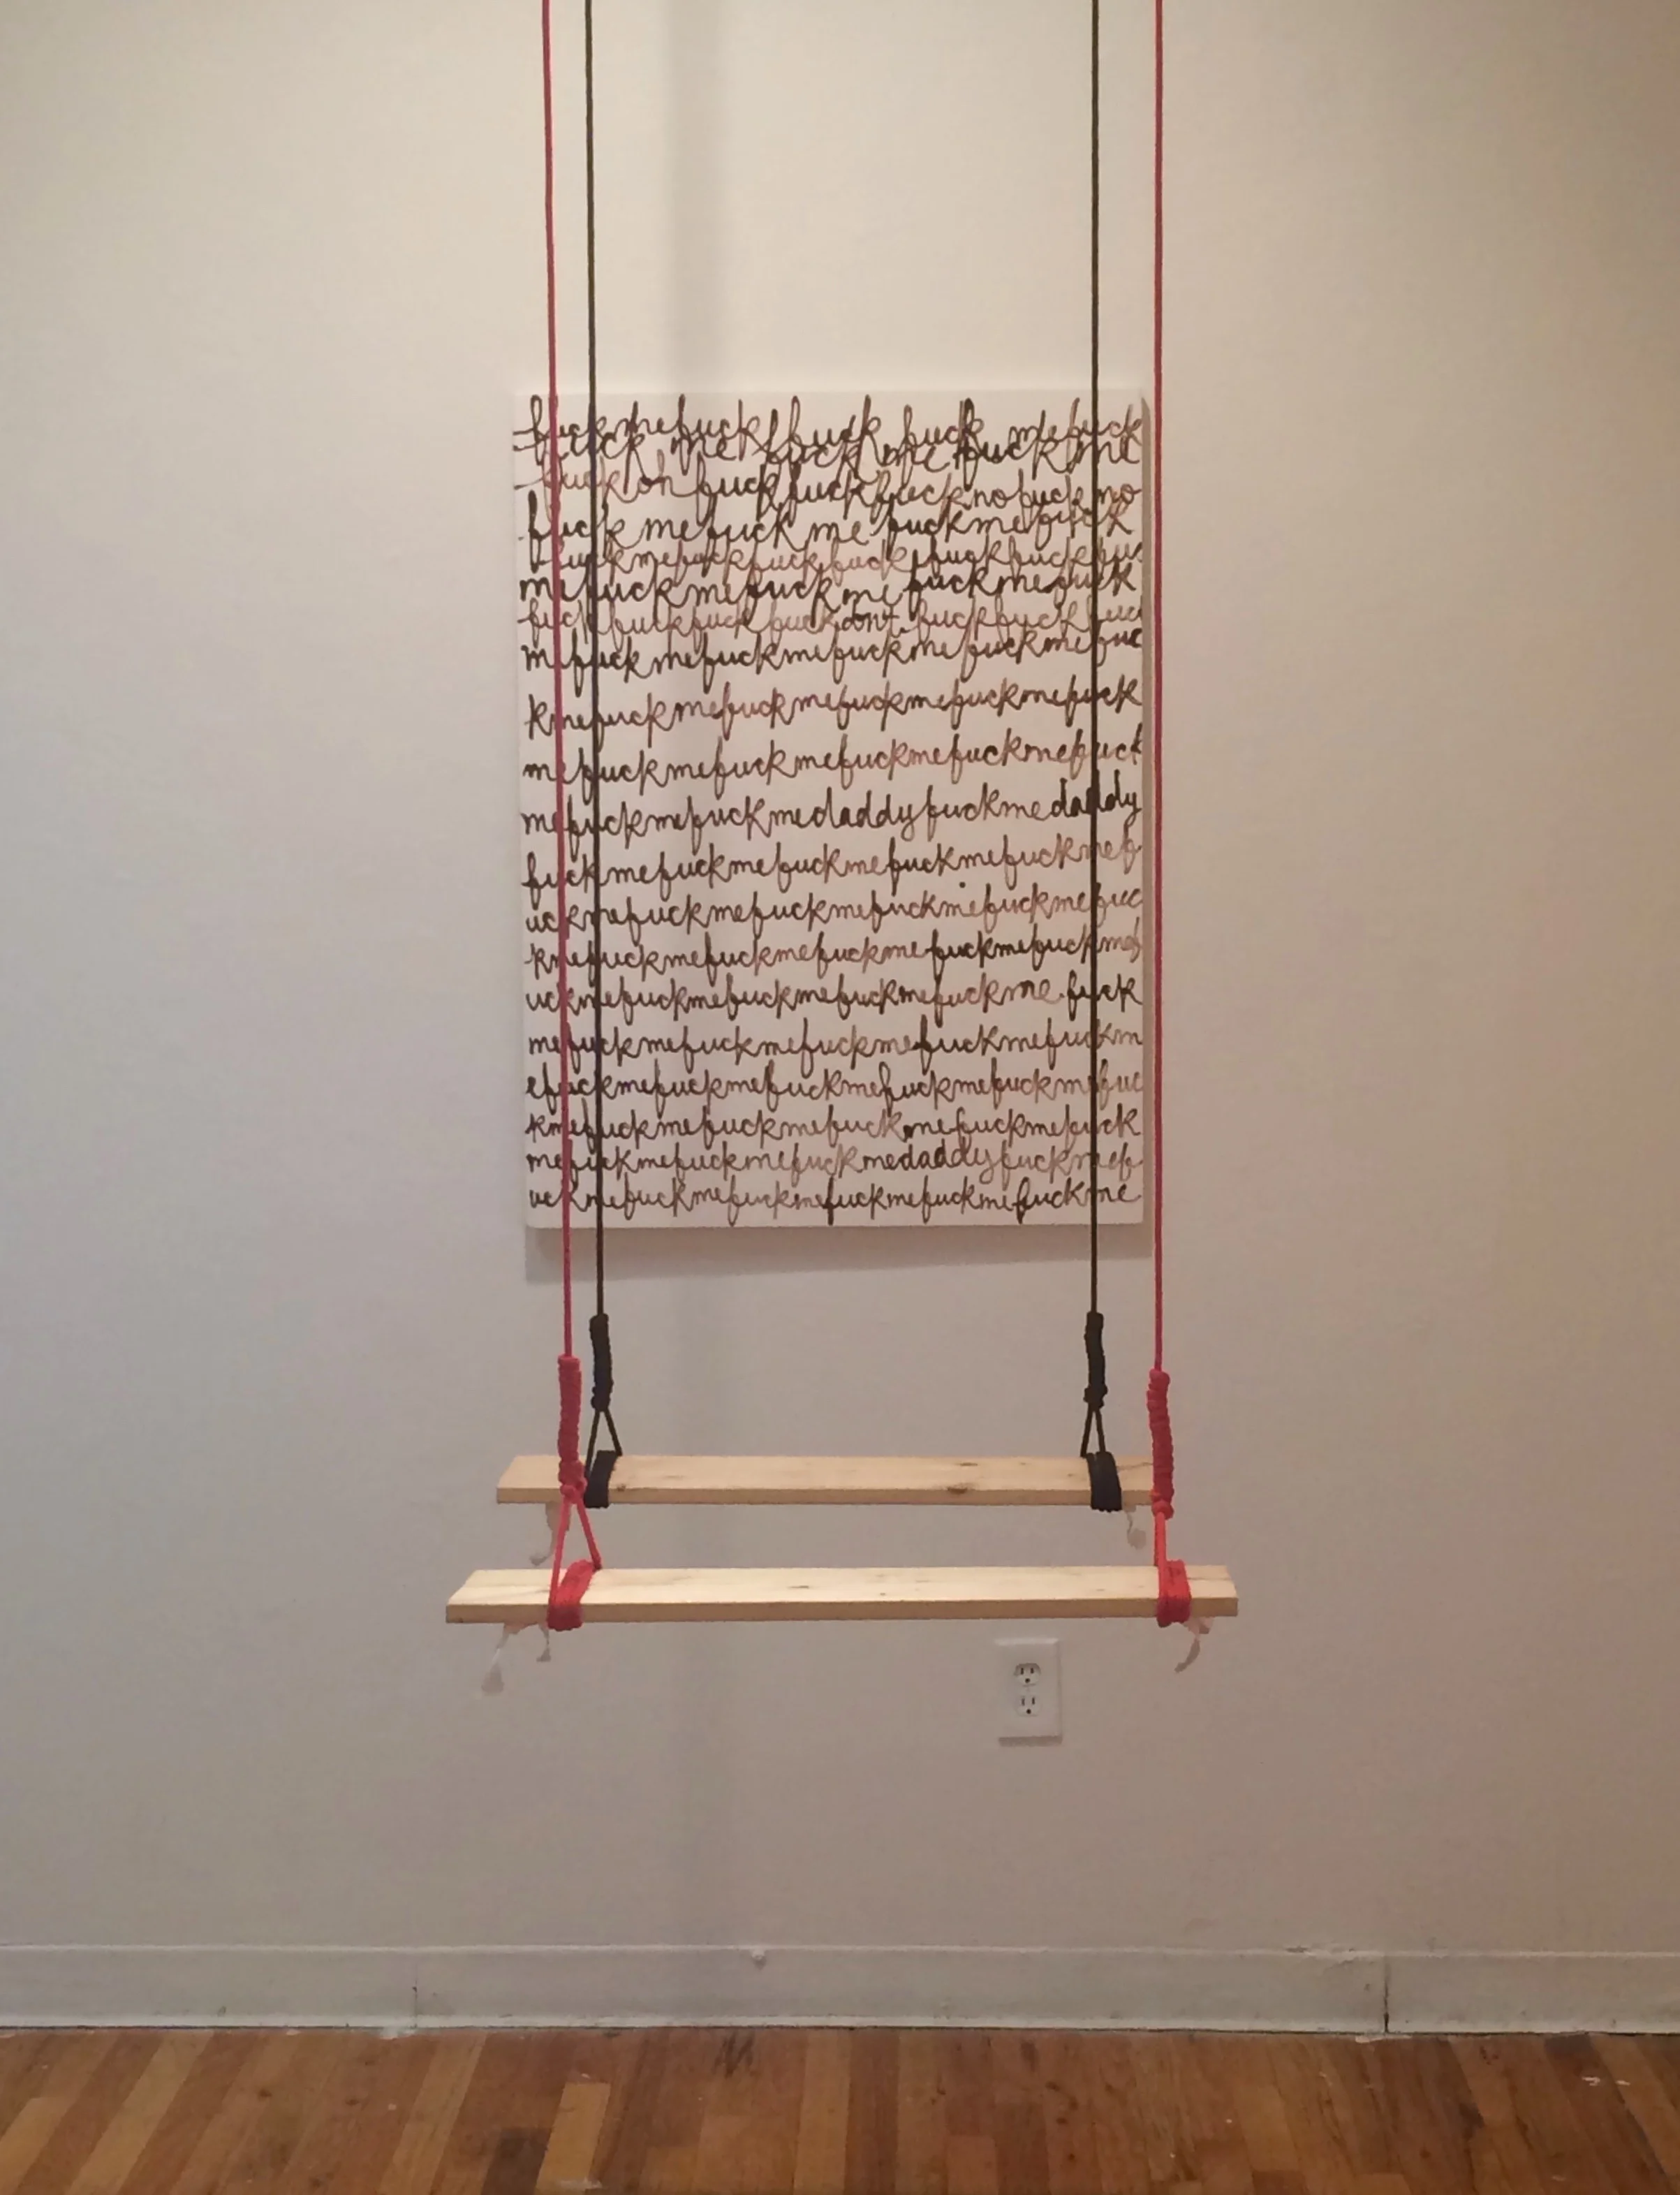 fuckmefuck fuck fuck mefuck
fuck me fuck me fuck me
fuck oh fuck fuck fuck no fuck no
fuck me fuck me fuckmefuck
fuckmefuckfuckfuck fuckfuckfuc
mefuckmefuck me fuckmefuck
fuck fuckfuck fuck don't fuckfuck fuck
mefuckmefuckmefuckmefuckmefuc
kmefuckmefuckmefuckmefuckmefuck
mefuckmefuckmefuckmefuckmefuck
mefuckmefuckmedaddyfuckmedaddy
fuckmefuckmefuckmefuckmefuckmef
uckmefuckmefuckmefuckmefuckmefuc
kmefuckmefuckmefuckmefuckmefuckmef
uckmefuckmefuckmefuckmefuckme fuck
mefuckmefuckmefuckmefuckmefuckm
efuckmefuckmefuckmefuckmefuckmefuc
kmefuckmefuckmefuckmefuckmefuck
mefuckmefuckmefuckmedaddyfuckmef
uckmefuckmefuckmefuckmefuckmefuckme